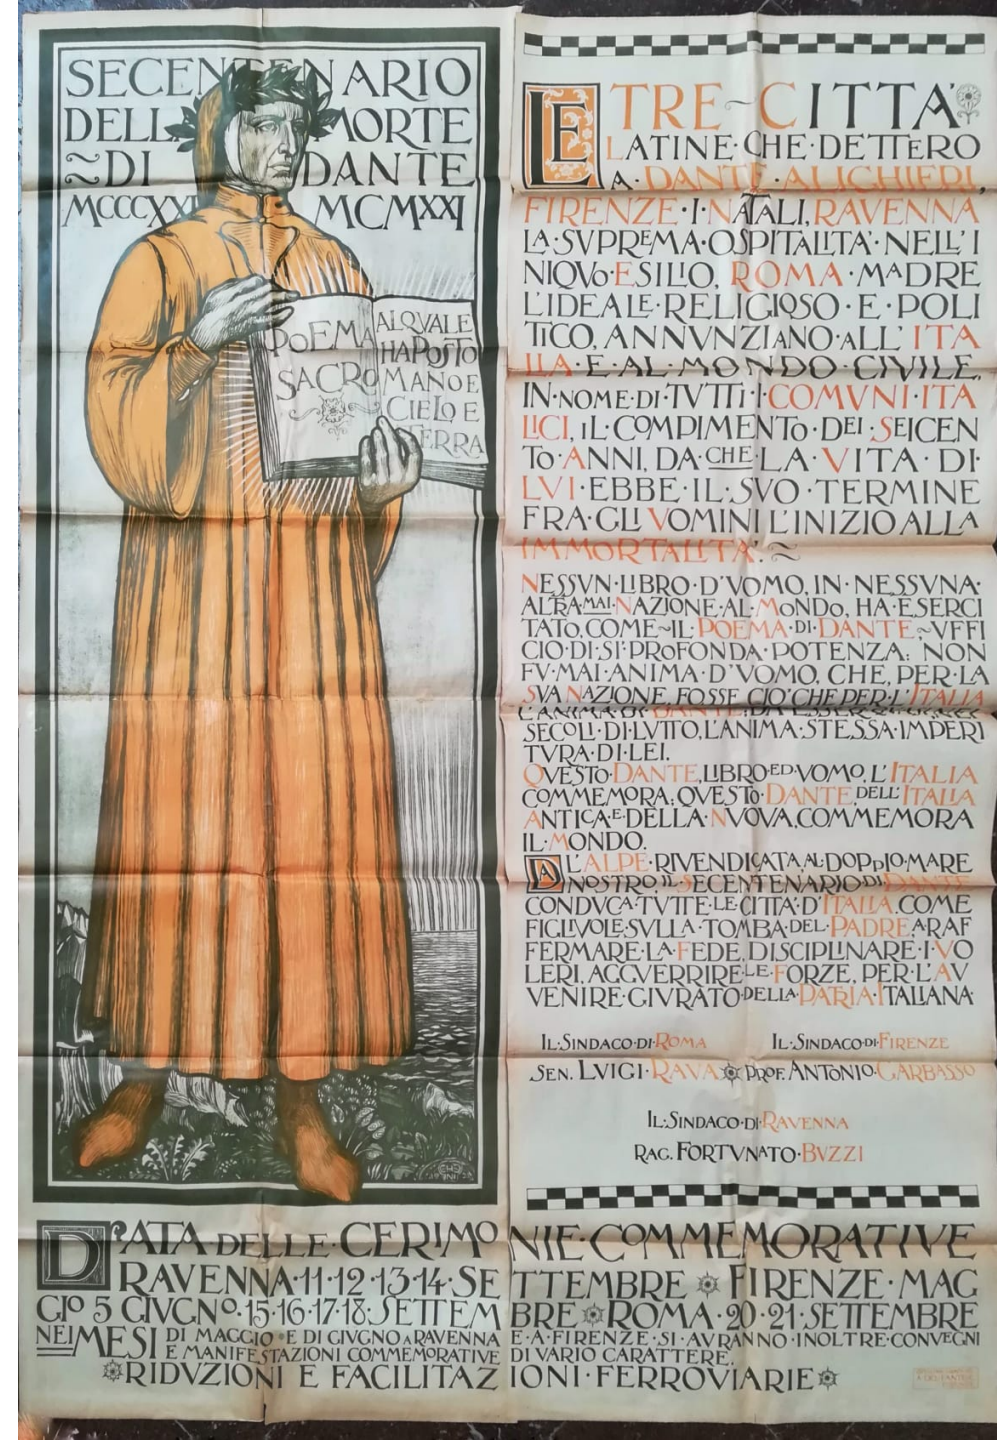 SECENTENARIO
DELLA MORTE
~DI DANTE
MCCCXXI MCMXXI
POEMA
SACRO
AL QVALE
HA POSTO
MANO E
CIELO E
TERRA
LE TRE~CITTA'
LATINE·CHE·DETTERO
A·DANTE·ALIGHIERI,
FIRENZE·I·NATALI, RAVENNA
LA·SVPREMA·OSPITALITA'·NELL'I
NIQVO·ESILIO, ROMA·MADRE
L'IDEALE·RELIGIOSO·E·POLI
TICO, ANNVNZIANO·ALL'ITA
LIA·E·AL·MONDO·CIVILE,
IN·NOME·DI·TVTTI·I·COMVNI·ITA
LICI, IL·COMPIMENTO·DEI·SEICEN
TO·ANNI, DA·CHE·LA·VITA·DI·
LVI·EBBE·IL·SVO·TERMINE
FRA·GLI VOMINI L'INIZIO ALLA
IMMORTALITA'.~
NESSVN·LIBRO·D'VOMO, IN·NESSVNA·
ALTRA·MAI·NAZIONE·AL·MONDO, HA·ESERCI
TATO, COME~IL·POEMA·DI·DANTE,~VFFI
CIO·DI·SI·PROFONDA·POTENZA; NON
FV·MAI·ANIMA·D'VOMO, CHE, PER·LA
SVA NAZIONE, FOSSE CIO'CHE PER·L'ITALIA
L'ANIMA·DI·DANTE:
SECOLI·DI·LVTTO, L'ANIMA·STESSA·IMPERI
TVRA·DI·LEI.
QVESTO·DANTE, LIBRO·ED·VOMO, L'ITALIA
COMMEMORA; QVESTO·DANTE, DELL'ITALIA
ANTICA·E·DELLA·NVOVA, COMMEMORA
IL·MONDO.
DAL'ALPE·RIVENDICATA, AL·DOPPIO·MARE
NOSTRO, IL·SECENTENARIO·DI·DANTE
CONDVCA·TVTTE·LE·CITTA'·D'ITALIA, COME
FIGLIVOLE·SVLLA·TOMBA·DEL·PADRE, A·RAF
FERMARE·LA·FEDE, DISCIPLINARE·I·VO
LERI, AGGVERRIRE·LE·FORZE, PER·L'AV
VENIRE·GIVRATO·DELLA·PATRIA·ITALIANA·
IL·SINDACO·DI·ROMA IL·SINDACO·DI·FIRENZE
SEN. LVIGI·RAVA PROF. ANTONIO·GARBASSO
IL·SINDACO·DI·RAVENNA
RAG. FORTVNATO·BVZZI
DATA DELLE·CERIMONIE·COMMEMORATIVE
RAVENNA·11·12·13·14·SETTEMBRE FIRENZE·MAG
GIO 5 GIVGNO·15·16·17·18·SETTEMBRE ROMA·20·21·SETTEMBRE
NEI MESI DI MAGGIO·E DI GIVGNO A RAVENNA E·A·FIRENZE·SI·AVRANNO·INOLTRE·CONVEGNI
E MANIFESTAZIONI COMMEMORATIVE DI VARIO CARATTERE.
RIDVZIONI E FACILITAZIONI·FERROVIARIE